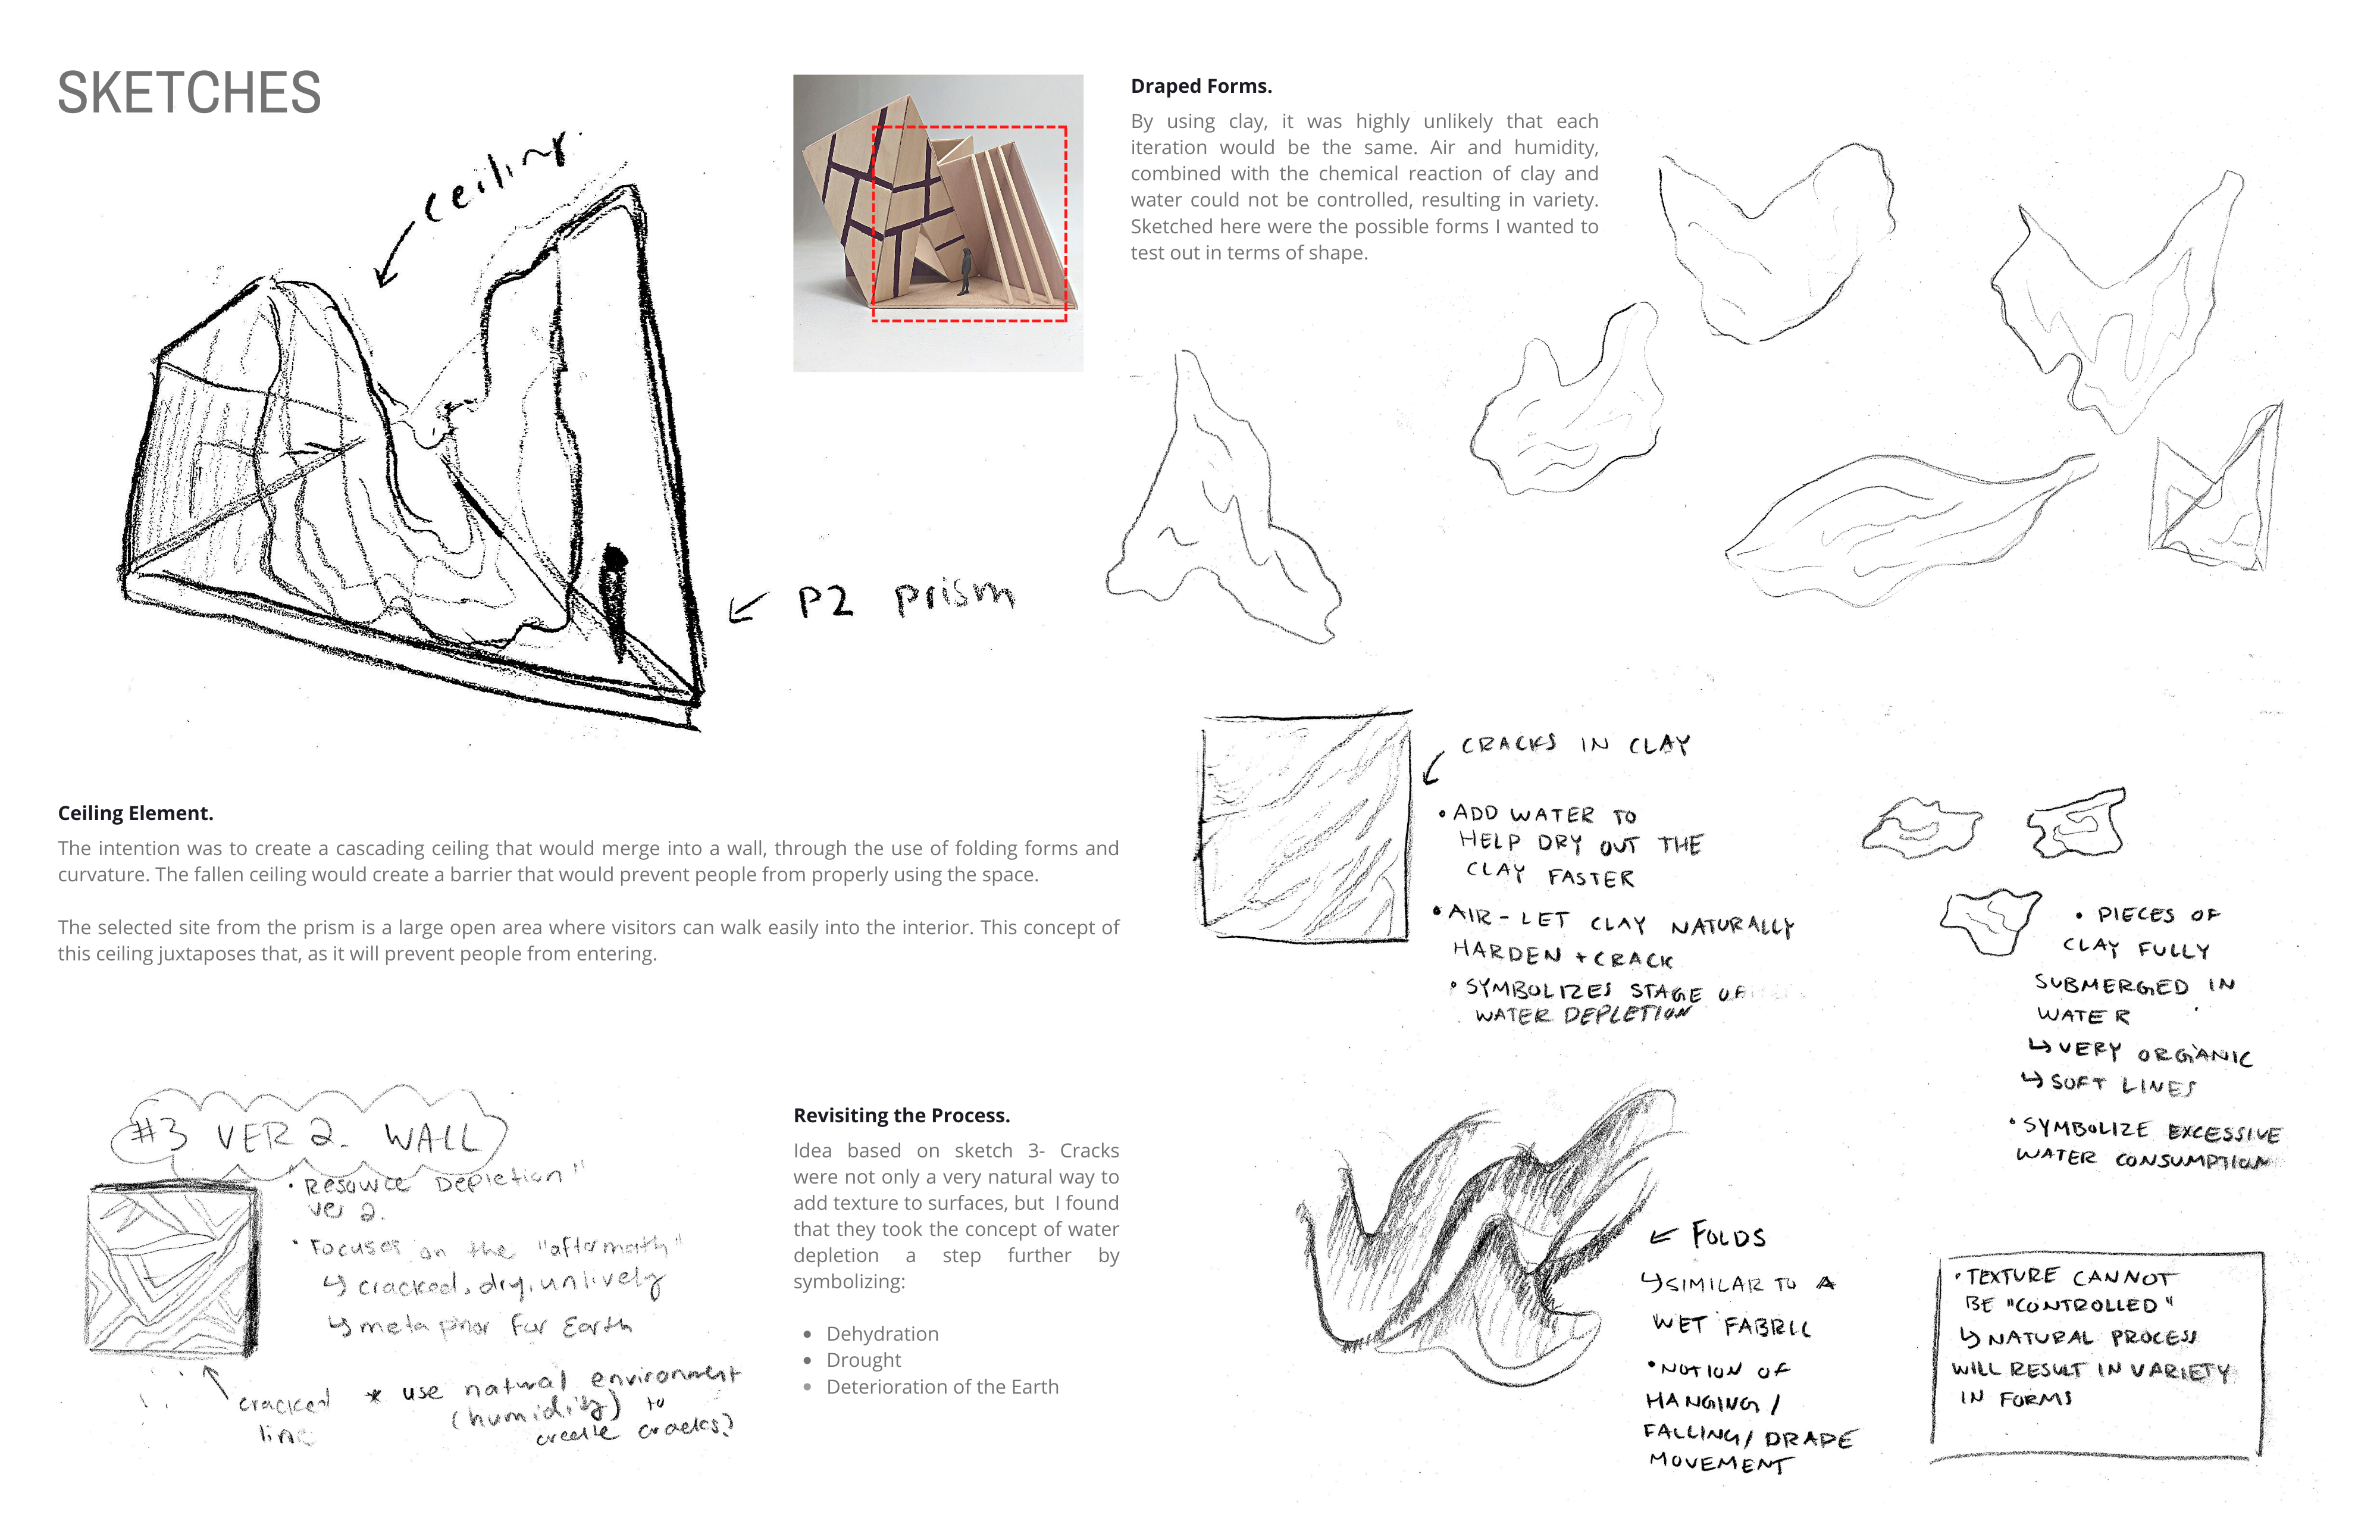 SKETCHES
ceiling.
P2 prism
Draped Forms.
By using clay, it was highly unlikely that each
iteration would be the same. Air and humidity,
combined with the chemical reaction of clay and
water could not be controlled, resulting in variety.
Sketched here were the possible forms I wanted to
test out in terms of shape.
Ceiling Element.
The intention was to create a cascading ceiling that would merge into a wall, through the use of folding forms and
curvature. The fallen ceiling would create a barrier that would prevent people from properly using the space.
The selected site from the prism is a large open area where visitors can walk easily into the interior. This concept of
this ceiling juxtaposes that, as it will prevent people from entering.
CRACKS IN CLAY
• ADD WATER TO
HELP DRY OUT THE
CLAY FASTER
• AIR - LET CLAY NATURALLY
HARDEN + CRACK
• SYMBOLIZES STAGE OF
WATER DEPLETION
• PIECES OF
CLAY FULLY
SUBMERGED IN
WATER
↳ VERY ORGANIC
↳ SOFT LINES
• SYMBOLIZE EXCESSIVE
WATER CONSUMPTION
#3 VER 2. WALL
• "Resource Depletion"
ver 2.
• Focuses on the "aftermath"
↳ cracked, dry, unlively
↳ metaphor for Earth
cracked
line
* use natural environment
(humidity) to
create cracks?
Revisiting the Process.
Idea based on sketch 3- Cracks
were not only a very natural way to
add texture to surfaces, but I found
that they took the concept of water
depletion a step further by
symbolizing:
• Dehydration
• Drought
• Deterioration of the Earth
← FOLDS
↳ SIMILAR TO A
WET FABRIC
• NOTION OF
HANGING /
FALLING / DRAPE
MOVEMENT
• TEXTURE CANNOT
BE "CONTROLLED"
↳ NATURAL PROCESS
WILL RESULT IN VARIETY
IN FORMS